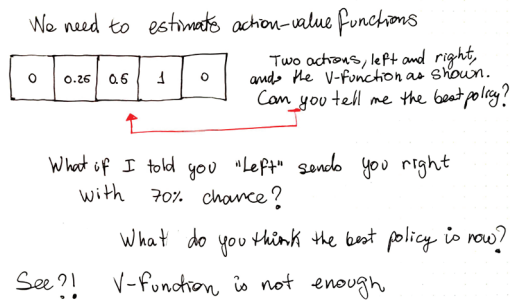 We need to estimate action-value functions
0 0.25 0.5 1 0
Two actions, left and right,
and the V-function as shown.
Can you tell me the best policy?
What if I told you "Left" sends you right
with 70% chance?
What do you think the best policy is now?
See?! V-function is not enough